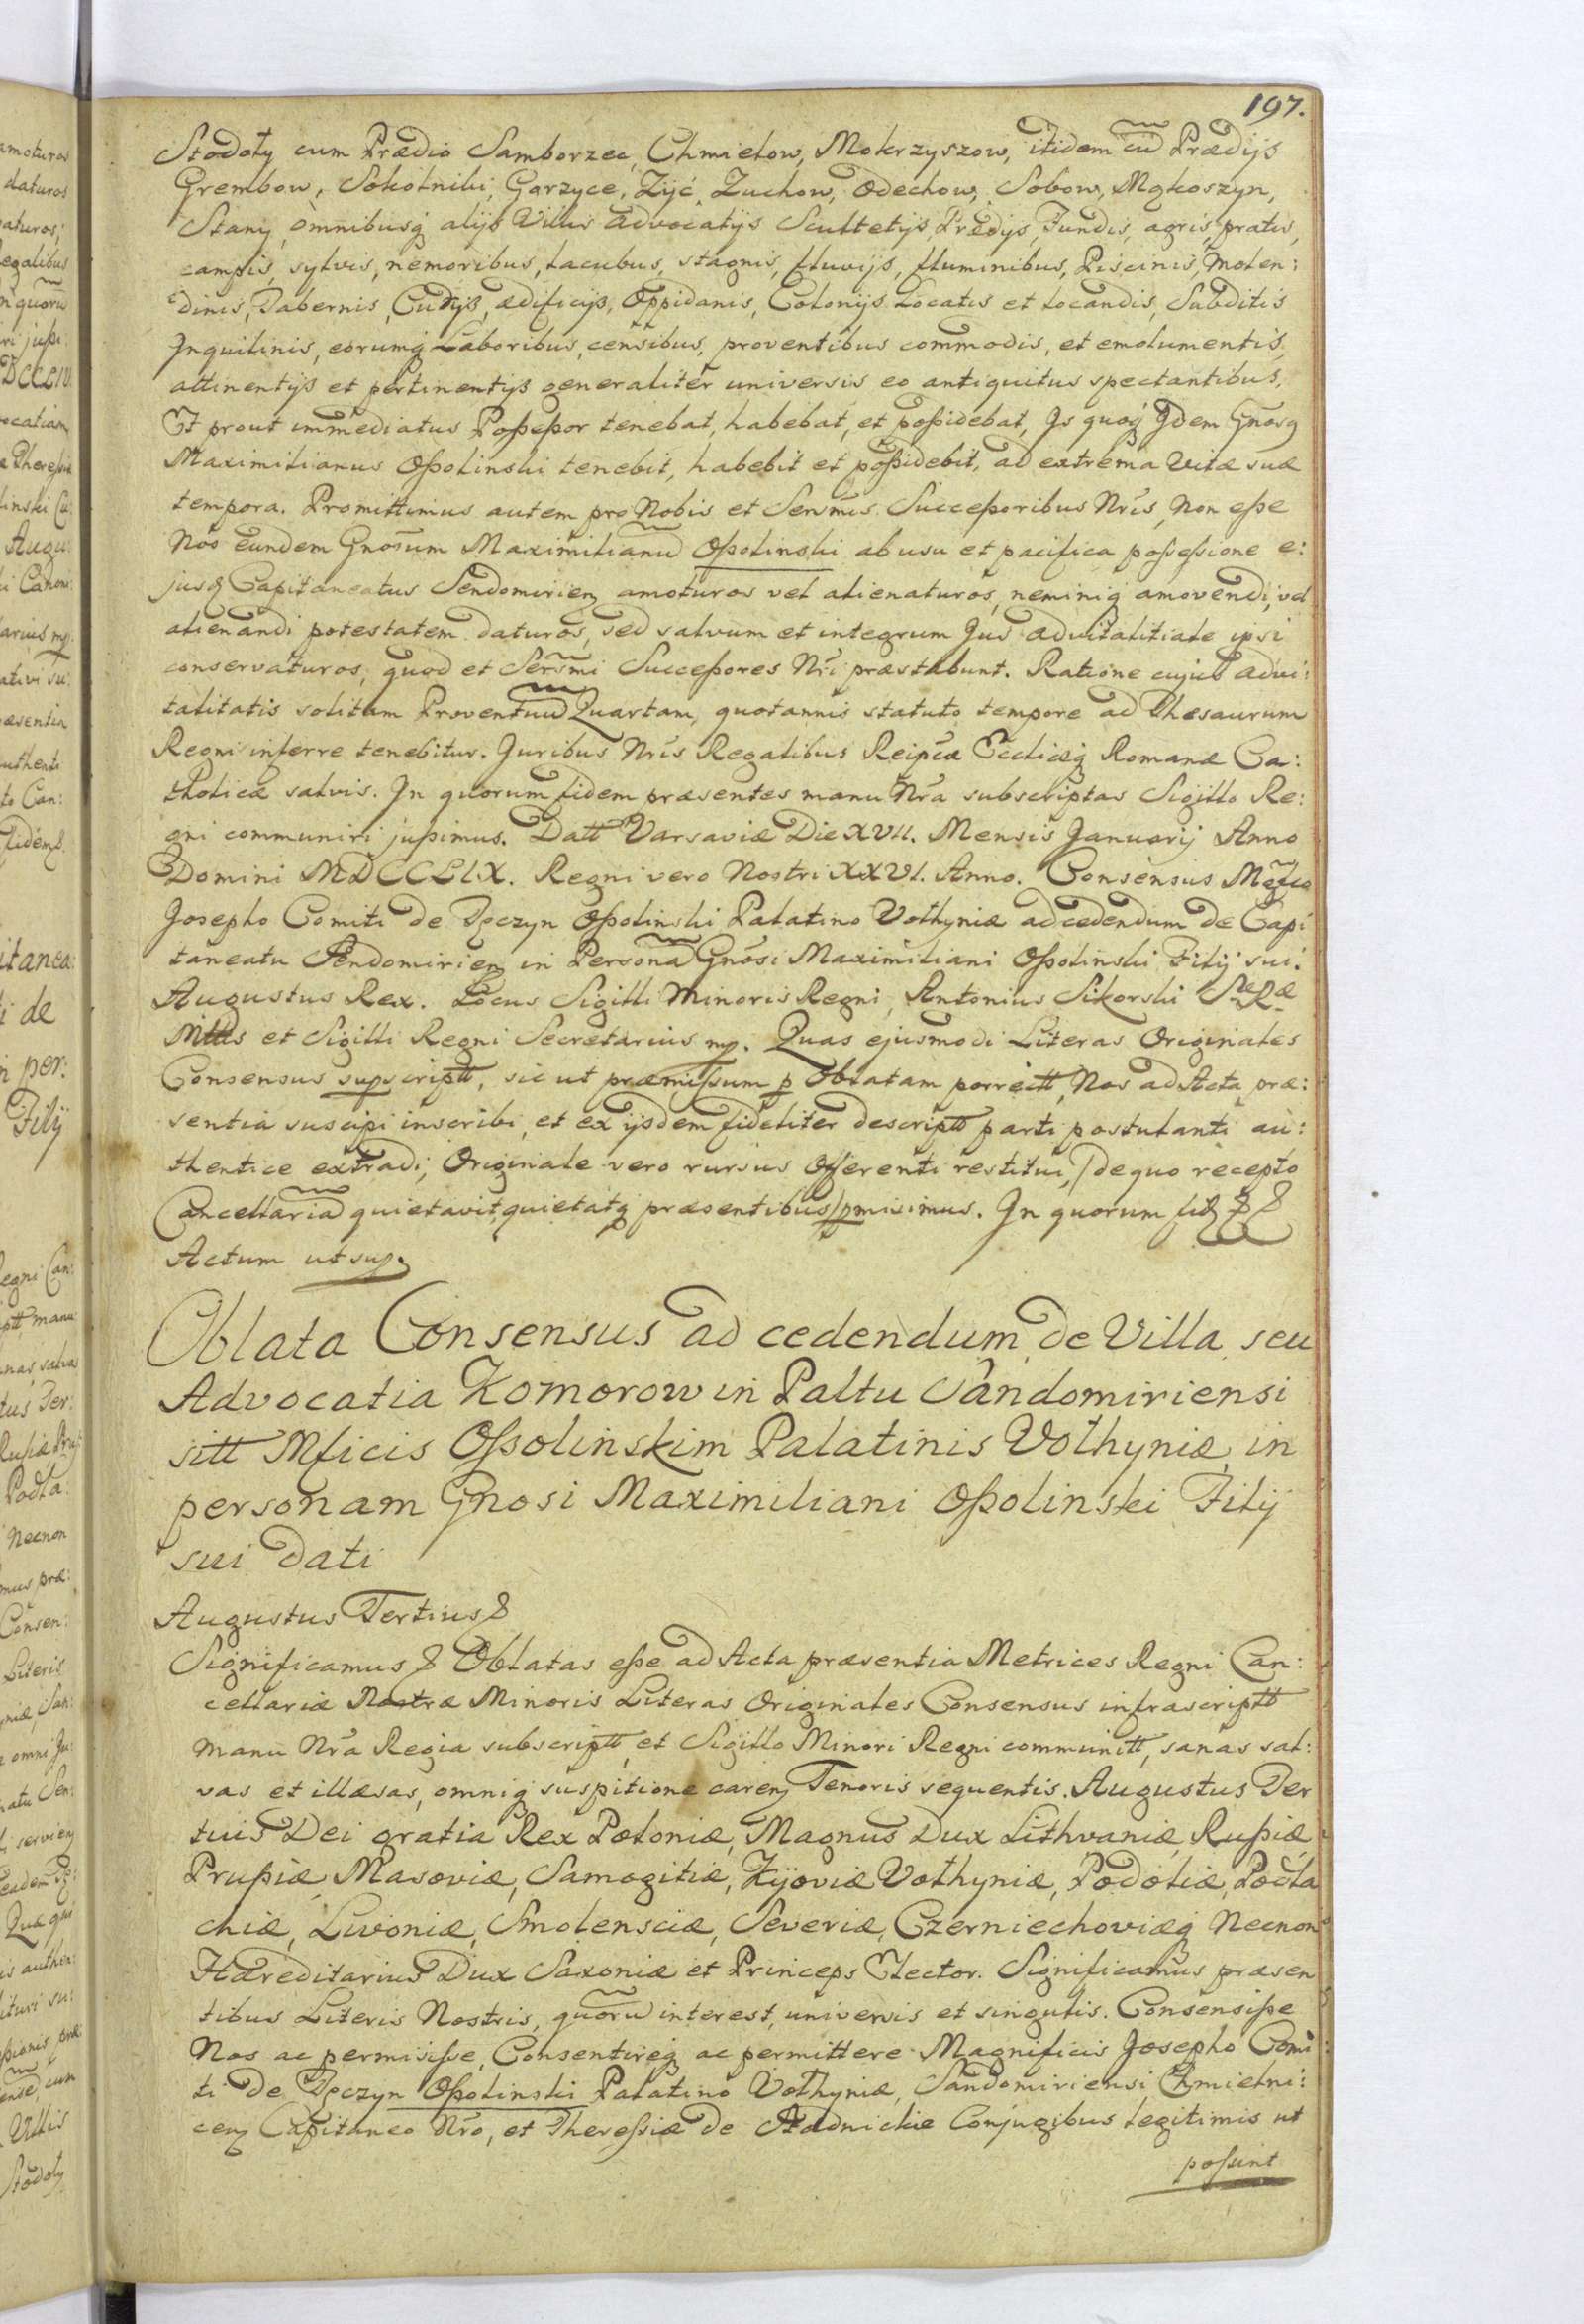 197.
Stodoły cum Prædio Samborzec, Chmielow, Mokrzyszow, itidem cũ Prædijs
Grembow, Sokolniki, Gorzyce, Żyć, Żuchow, Odechow, Sobow, Mokoszyn,
Stany, omnibusq alijs Villis Advocatijs Scultetijs, Prædijs, Fundis, agris, pratis,
campis, sylvis, nemoribus, lacubus, stagnis, fluvijs, fluminibus, Piscinis, Molen:
dinis, Tabernis, Curijs, ædificijs, Oppidanis, Colonijs Locatis et locandis, Subditis
Inquilinis, eorumq Laboribus, censibus, proventibus commodis, et emolumentis,
attinentijs et pertinentijs generaliter universis eo antiquitus spectantibus.
Et prout immediatus Poßeßor tenebat, habebat, et poßidebat, Is quoq Idem Gnosq
Maximilianus Oßolinski tenebit, habebit et poßidebit, ad extrema Vitæ suæ
tempora. Promittimus autem pro Nobis et Serm̃is Succeßoribus Nr̃is, Non eße
Nos eundem Gnosum Maximilianũ Oßolinski ab usu et pacifica poßeßione e:
jusq Capitaneatus Sendomirien amoturos vel alienaturos, neminiq amovendi, vel
alienandi potestatem daturos, sed salvum et integrum Jus advitalitiale ipsi
conservaturos, quod et Serm̃i Succeßores Nr̃i præstabunt. Ratione cujus advi:
talitatis solitam Proventuũ Quartam, quotannis statuto tempore ad Thesaurum
Regni inferre tenebitur. Juribus Nr̃is Regalibus Reipcæ Eccliæq Romanæ Ca:
tholicæ salvis. In quorum fidem præsentes manu Nr̃a subscriptas Sigillo Re:
gni communiri jußimus. Datt Varsaviæ Die XVII. Mensis Januarij Anno
Domini MDCCLIX. Regni vero Nostri XXVI. Anno. Consensus Mgfco
Josepho Comiti de Tęczyn Oßolinski Palatino Volhyniæ ad cedendum de Capi
taneatu Sendomirien in Personã Gnosi Maximiliani Oßolinski Filij sui.
Augustus Rex. Locus Sigilli Minoris Regni, Antonius Sikorski Sæ Ræ
Mttis et Sigilli Regni Secretarius mp. Quas ejusmodi Literas Originales
Consensus supscriptt, sic ut præmißum p Oblatam porrectt, Nos ad Acta præ:
sentia suscipi inscribi, et ex ijsdem fideliter descriptt parti postulanti au:
thentice extradi, Originale vero rursus Offerenti restitui, /de quo recepto
Cancellariã quietavit, quietatq præsentibus/ pmisimus. In quorum fid &&
Actum ut sup.
Oblata Consensus ad cedendum de Villa seu
Advocatia Komorow in Paltu Sandomiriensi
sitt Mficis Oßolinskim Palatinis Volhyniæ in
personam Gnosi Maximiliani Oßolinski Filij
sui dati
Augustus Tertius &
Significamus & Oblatas eße ad Acta præsentia Metrices Regni Can:
cellariæ Nostræ Minoris Literas Originales Consensus infrascriptt
Manu Nr̃a Regia subscriptt, et Sigillo Minori Regni communitt, sanas sal:
vas et illæsas, omniq suspitione caren Tenoris sequentis. Augustus Ter
tius Dei gratia Rex Poloniæ, Magnus Dux Lithvaniæ, Rußiæ
Prußiæ, Masoviæ, Samogitiæ, Kijoviæ Volhyniæ, Podoliæ, Podla
chiæ, Livoniæ, Smolensciæ, Severiæ, Czerniechoviæq Necnon
Hæreditarius Dux Saxoniæ et Princeps Elector. Significamus præsen
tibus Literis Nostris, quorũ interest, universis et singulis. Consensiße
Nos ac permisiße, Consentireq ac permittere Magnificis Josepho Comi:
ti de Tęczyn Oßolinski Palatino Volhyniæ, Sandomiriensi Chmielni:
cen Capitaneo Nr̃o, et Thereßiæ de Stadnickie Conjugibus legitimis ut
poßint